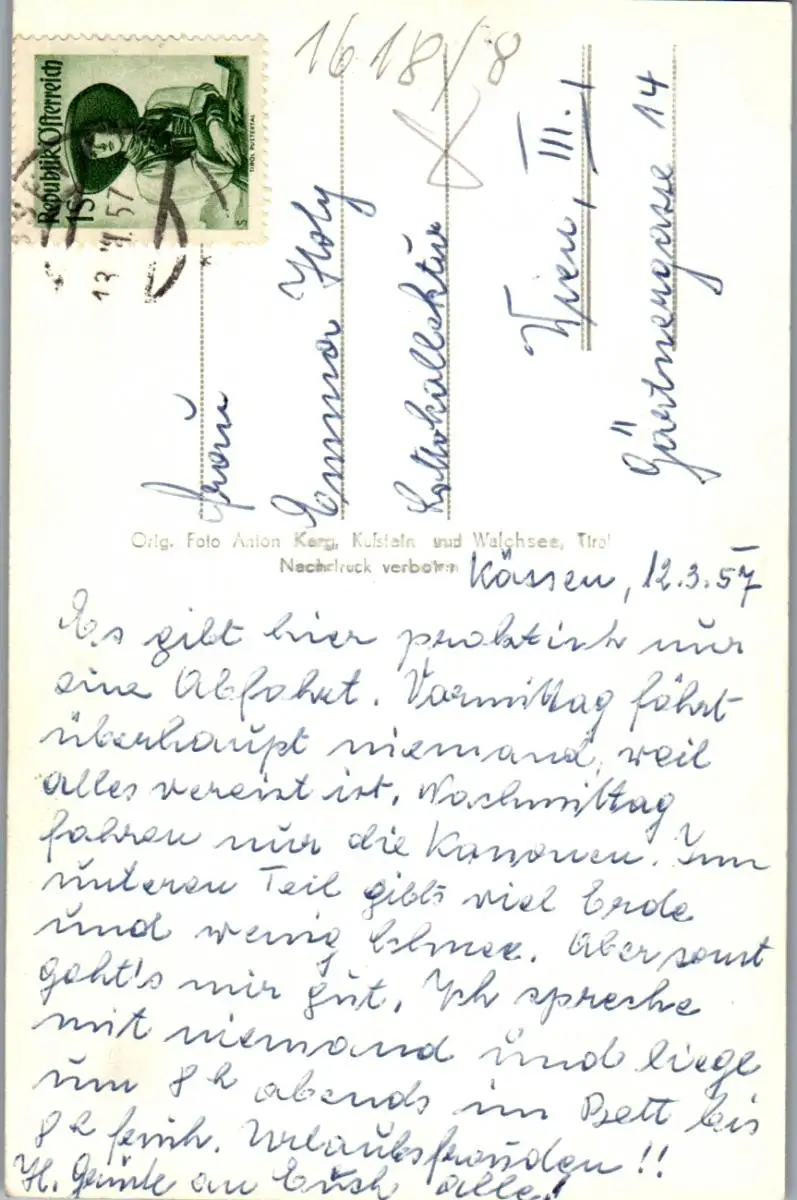 1618/8
Republik Österreich
1 S
TIROL PUSTERTAL
13. 57
Frau
Emma Holy
Lottokollektur
Wien, III.
Gärtnergasse 14
Orig. Foto Anton Karg, Kufstein und Walchsee, Tirol
Nachdruck verboten
Kössen, 12.3.57
Es gibt hier praktisch nur
eine Abfahrt. Vormittag fährt
überhaupt niemand, weil
alles vereist ist. Nachmittag
fahren nur die Kanonen. Im
unteren Teil gibt's viel Erde
und wenig Schnee. Aber sonst
geht's mir gut. Ich spreche
mit niemand und liege
um 8 h abends im Bett bis
8 h früh. Urlaubsfreuden!!
H. Grüße an Euch alle!